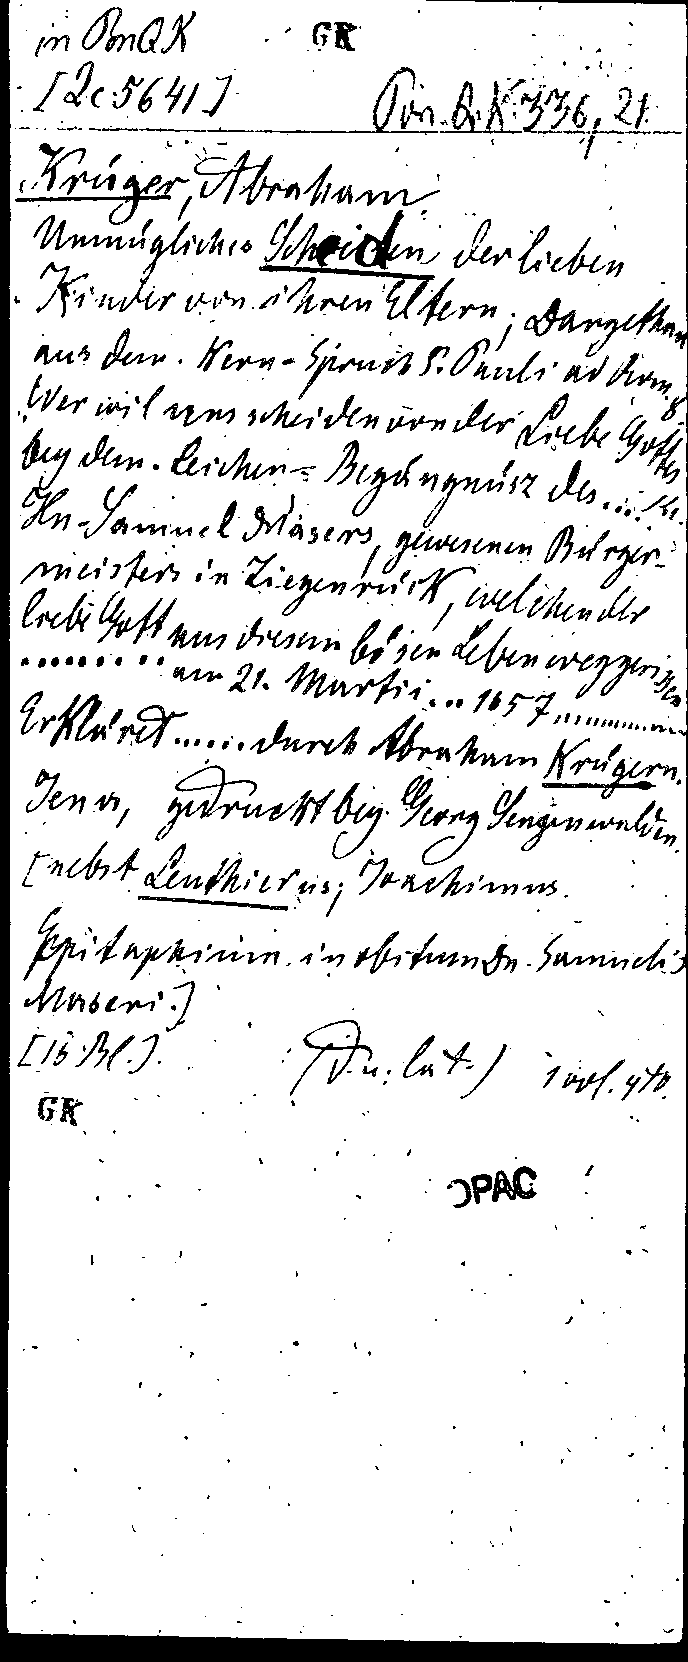 in Pon QK GK
[2c 5641] Pon. QK. 336, 21.
Krüger, Abraham
Unmügliches Scheiden der lieben
Kinder von ihren Eltern; Dargethan
aus dem Kern-Spruch S. Pauli ad Rom. 8
Wer wil uns scheiden von der Liebe Gottes
bey dem Leichen-Begängnüsz des ...
Hn. Samuel Masers, gewesenen Bürger-
meisters in Ziegenrück, welchen der
liebe Gott aus diesem bösen Leben weggerissen
........ am 21. Martii ... 1657 .........
Erkläret ...... durch Abraham Krügern.
Jena, gedruckt bey Georg Sengenwalden.
[nebst Leuthierus, Joachimus.
Epitaphium in obitum Dn. Samuelis
Maseri.]
[16 Bl.]. (D. u. lat.) 1 vol. 4to.
GK
OPAC